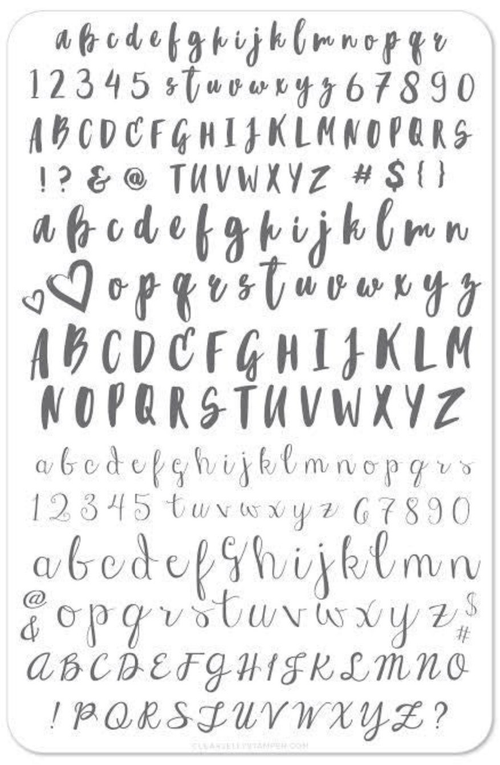 a b c d e f g h i j k l m n o p q r
1 2 3 4 5 s t u v w x y z 6 7 8 9 0
A B C D E F G H I J K L M N O P Q R S
! ? & @ T U V W X Y Z # $ { }
a b c d e f g h i j k l m n
o p q r s t u v w x y z
A B C D E F G H I J K L M
N O P Q R S T U V W X Y Z
a b c d e f g h i j k l m n o p q r s
1 2 3 4 5 t u v w x y z 6 7 8 9 0
a b c d e f g h i j k l m n
@ & o p q r s t u v w x y z $ #
A B C D E F G H I J K L M N O
! P Q R S T U V W X Y Z ?
CLEARJELLYSTAMPER.COM